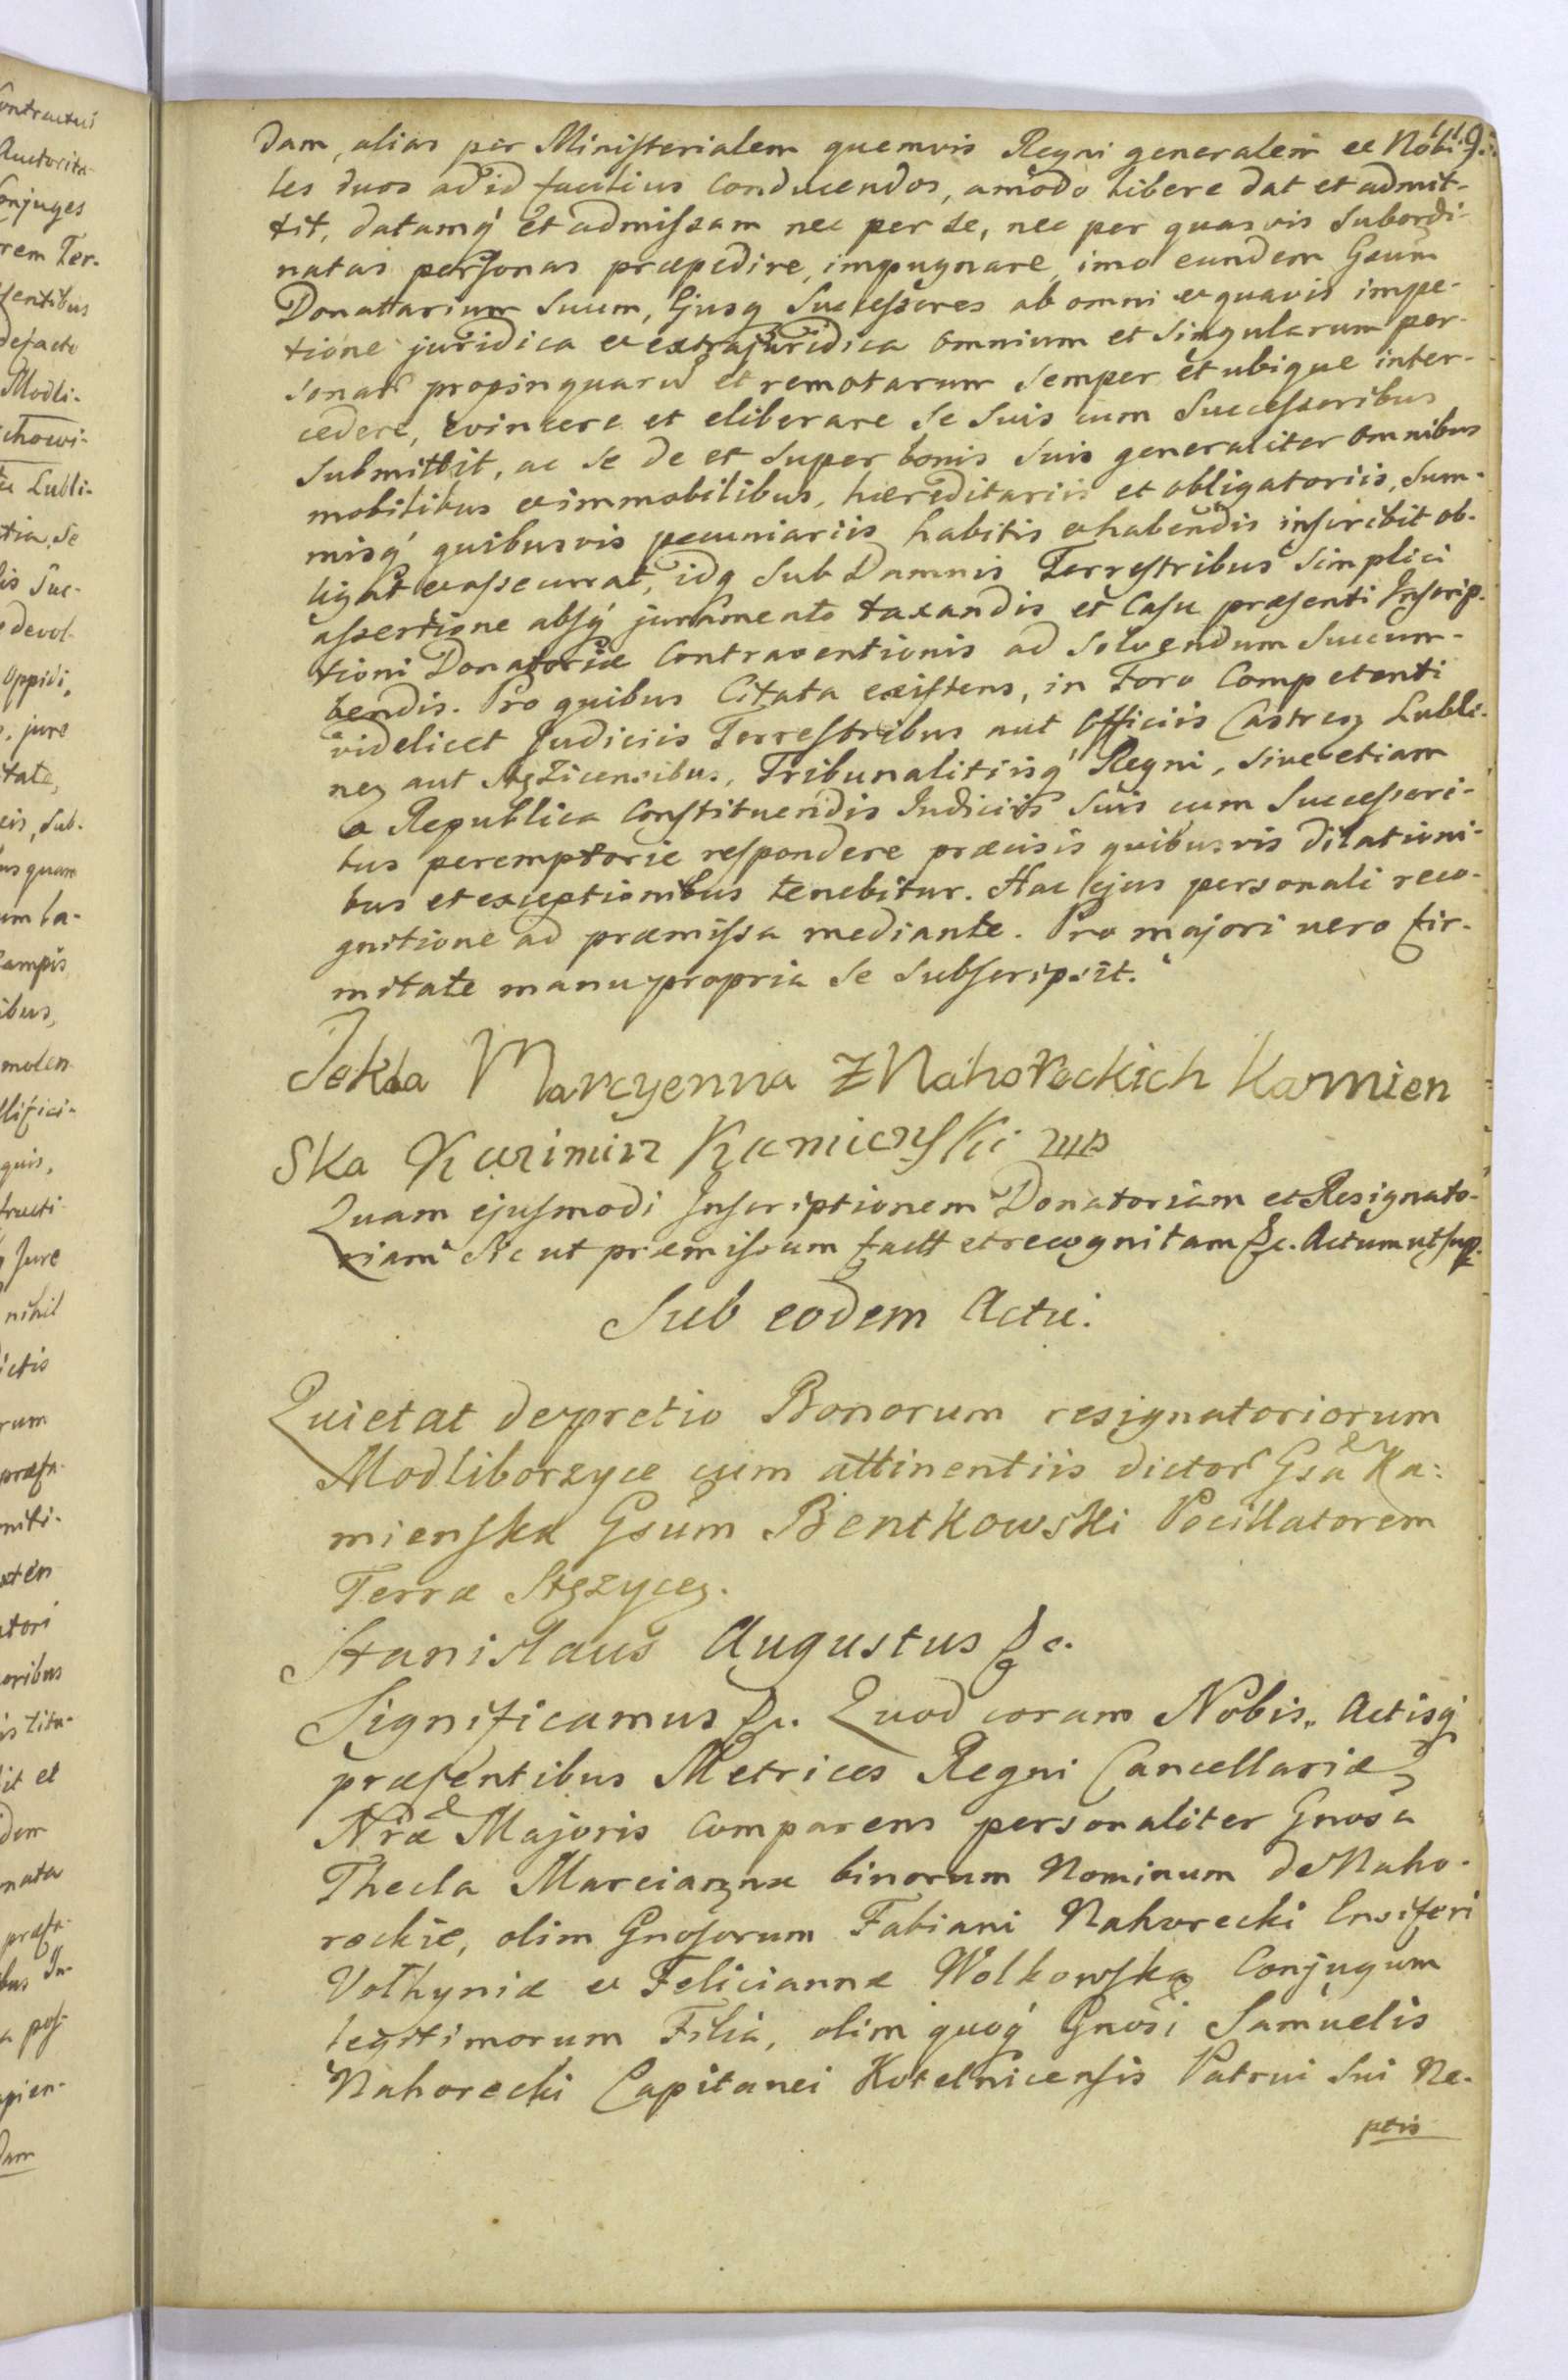 dam, alias per Ministerialem quemvis Regni generalem et Nobi-
les duos ad id facilius conducendos, amodo libere dat et admit-
tit, datamq́ et admissam nec per se, nec per quasvis subordi-
natas personas præpedire, impugnare, imo eundem Gsum
Donattarium suum, Ejusq Successores ab omni et quavis impe-
titione juridica et extrajuridica omnium et singularum per-
sonar propinquaru et remotarum semper et ubique inter-
cedere, evincere et eliberare se suis cum Successoribus
submittit, ac se de et super bonis suis generaliter omnibus
mobilibus et immobilibus, hæreditariis et obligatoriis, sum-
misq́ quibusvis pecuniariis habitis et habendis inscribit ob-
ligat et assecurrat, idq sub Damnis Terrestribus simplici
assertione absq́ juramento taxandis et Casu præsenti Inscrip-
tioni Donatoriæ Contraventionis ad solvendum succum-
bendis. Pro quibus Citata existens, in Foro Competenti
videlicet Judiciis Terrestribus aut Officiis Castren Lubli-
nen aut Stęzicensibus, Tribunalitiisq́ Regni, sive etiam
a Republica Constituendis Judiciis suis cum Successori-
bus peremptorie respondere præcisis quibusvis dilationi-
bus et exceptionibus tenebitur. Hac ejus personali reco-
gnitione ad præmissa mediante. Pro majori vero fir-
mitate manu propria se subscripsit.
Tekla Marcyenna z Nahoreckich Kamien
ska Kazimirz Kamienski mp
Quam ejusmodi Inscriptionem Donatoriam et Resignato-
riam sic ut præmissum factt et recognitam &c. Actum ut sup.
Sub eodem Actu.
Quietat de pretio Bonorum resignatoriorum
Modliborzyce cum attinentiis dictor Gsa Ka:
mienska Gsum Bentkowski Pocillatorem
Terræ Stęzycen.
Stanislaus Augustus &c.
Significamus &c. Quod coram Nobis, Actisq́
præsentibus Metrices Regni Cancellariæ
Nræ Majoris Comparens personaliter Gnosa
Thecla Marcianna binorum Nominum de Naho-
reckie, olim Gnosorum Fabiani Nahorecki Ensiferi
Volhyniæ et Feliciannæ Wolkowska Conjugum
legitimorum Filia, olim quoq́ Gnosi Samuelis
Nahorecki Capitanei Kotelnicensis Patrui sui Ne-
ptis